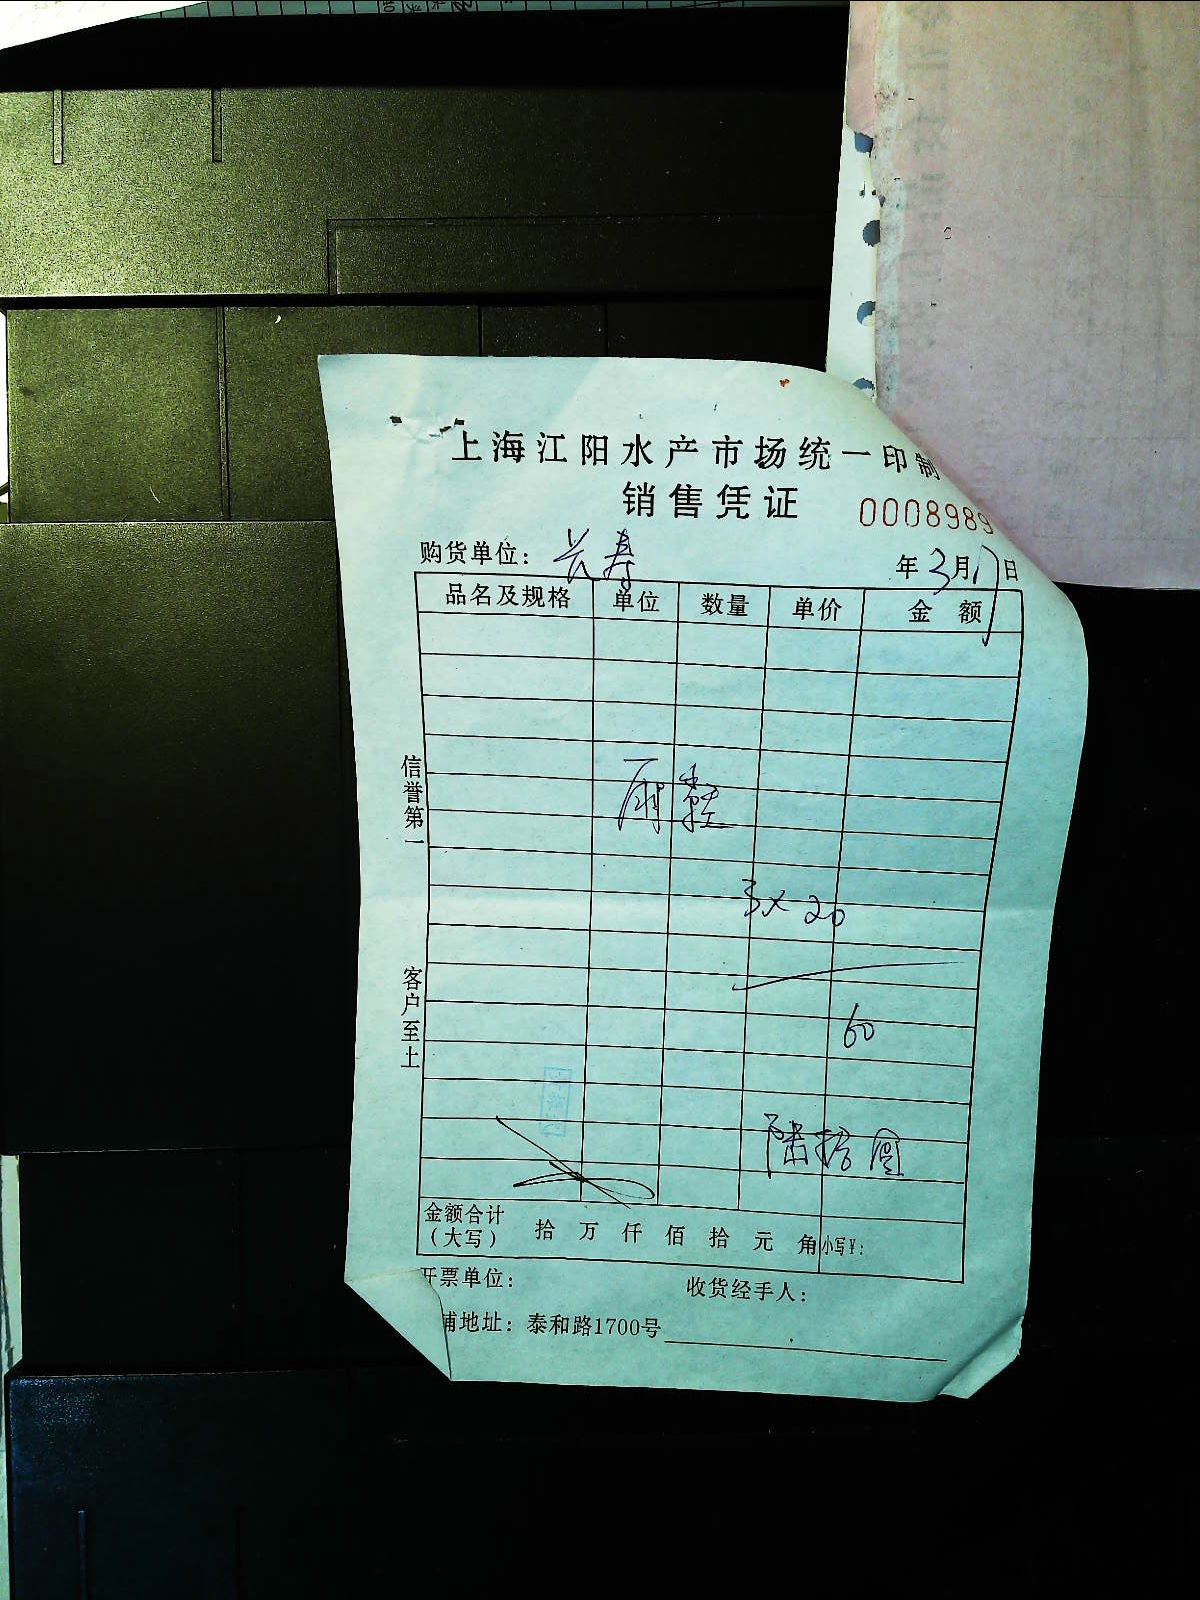 上海江阳水产市场统一印制
销售凭证 0008989
购货单位：长寿 年3月17日
品名及规格 单位 数量 单价 金额
信誉第一
3×20
客户至上
60
陆拾圆
金额合计（大写） 拾 万 仟 佰 拾 元 角 小写¥：
开票单位： 收货经手人：
铺地址：泰和路1700号